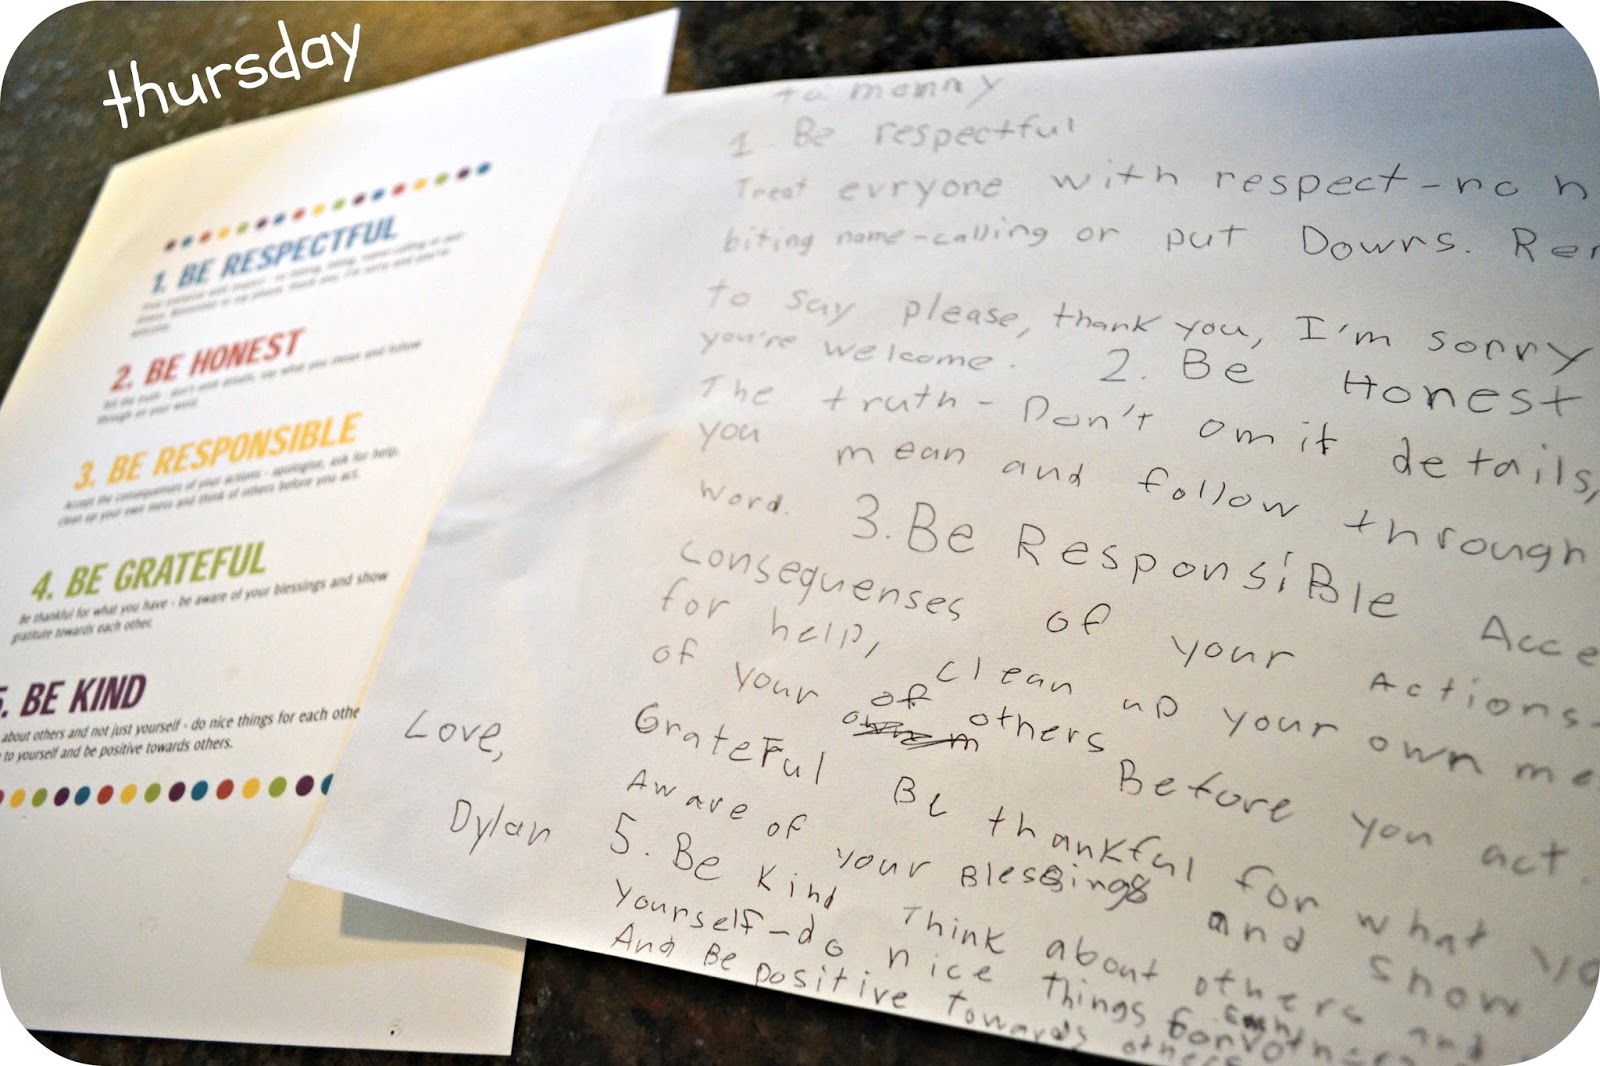 thursday
1. BE RESPECTFUL
2. BE HONEST
3. BE RESPONSIBLE
Accept the consequences of your actions - apologize, ask for help,
clean up your own mess and think of others before you act.
4. BE GRATEFUL
Be thankful for what you have - be aware of your blessings and show
gratitude towards each other.
5. BE KIND
about others and not just yourself - do nice things for each othe
to yourself and be positive towards others.
to momny
1 Be respectful
Treat evryone with respect-no h
biting name-calling or put Downs. Rem
to say please, thank you, I'm sorry
you're welcome. 2. Be Honest
The truth- Don't omit details,
you mean and follow through
word. 3. Be ResponsiBle Acce
Consequenses of your Actions-
for help, clean up your own me
of your of others Before you act.
Grateful Be thankful for what yo
Aware of your Blessings and show
5. Be kind Think about others and
yourself-do nice things for
And Be positive towards others
Love,
Dylan